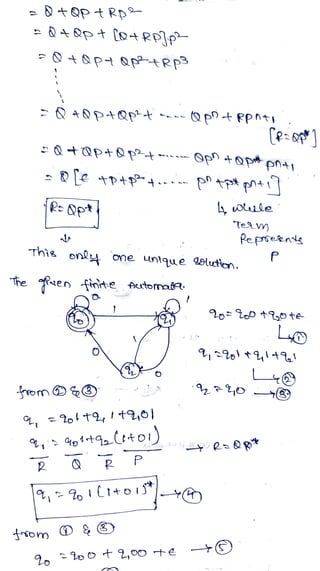 = Q + QP + RP²
= Q + QP + [Q+RP]P²
= Q + QP + QP² + RP³
= Q + QP + QP² + ---- QPⁿ + RPⁿ⁺¹
[R = QP*]
= Q + QP + QP² + ------ QPⁿ + QP* Pⁿ⁺¹
= Q [ε + P + P² + ..... Pⁿ + P* Pⁿ⁺¹]
R = QP*
↳ whole
Term
Represents
P
This only one unique solution.
The given finite Automata.
0
1
q0
1
q1
0
1
q2
0
q0 = q00 + q20 + ε
①
q1 = q01 + q11 + q21
②
q2 = q10 — ③
from ② & ③
q1 = q01 + q11 + q101
q1 = q01 + q2 (1+01) → R = QP*
R Q R P
q1 = q01 (1+01)* → ④
from ① & ③
q0 = q00 + q100 + ε → ⑤